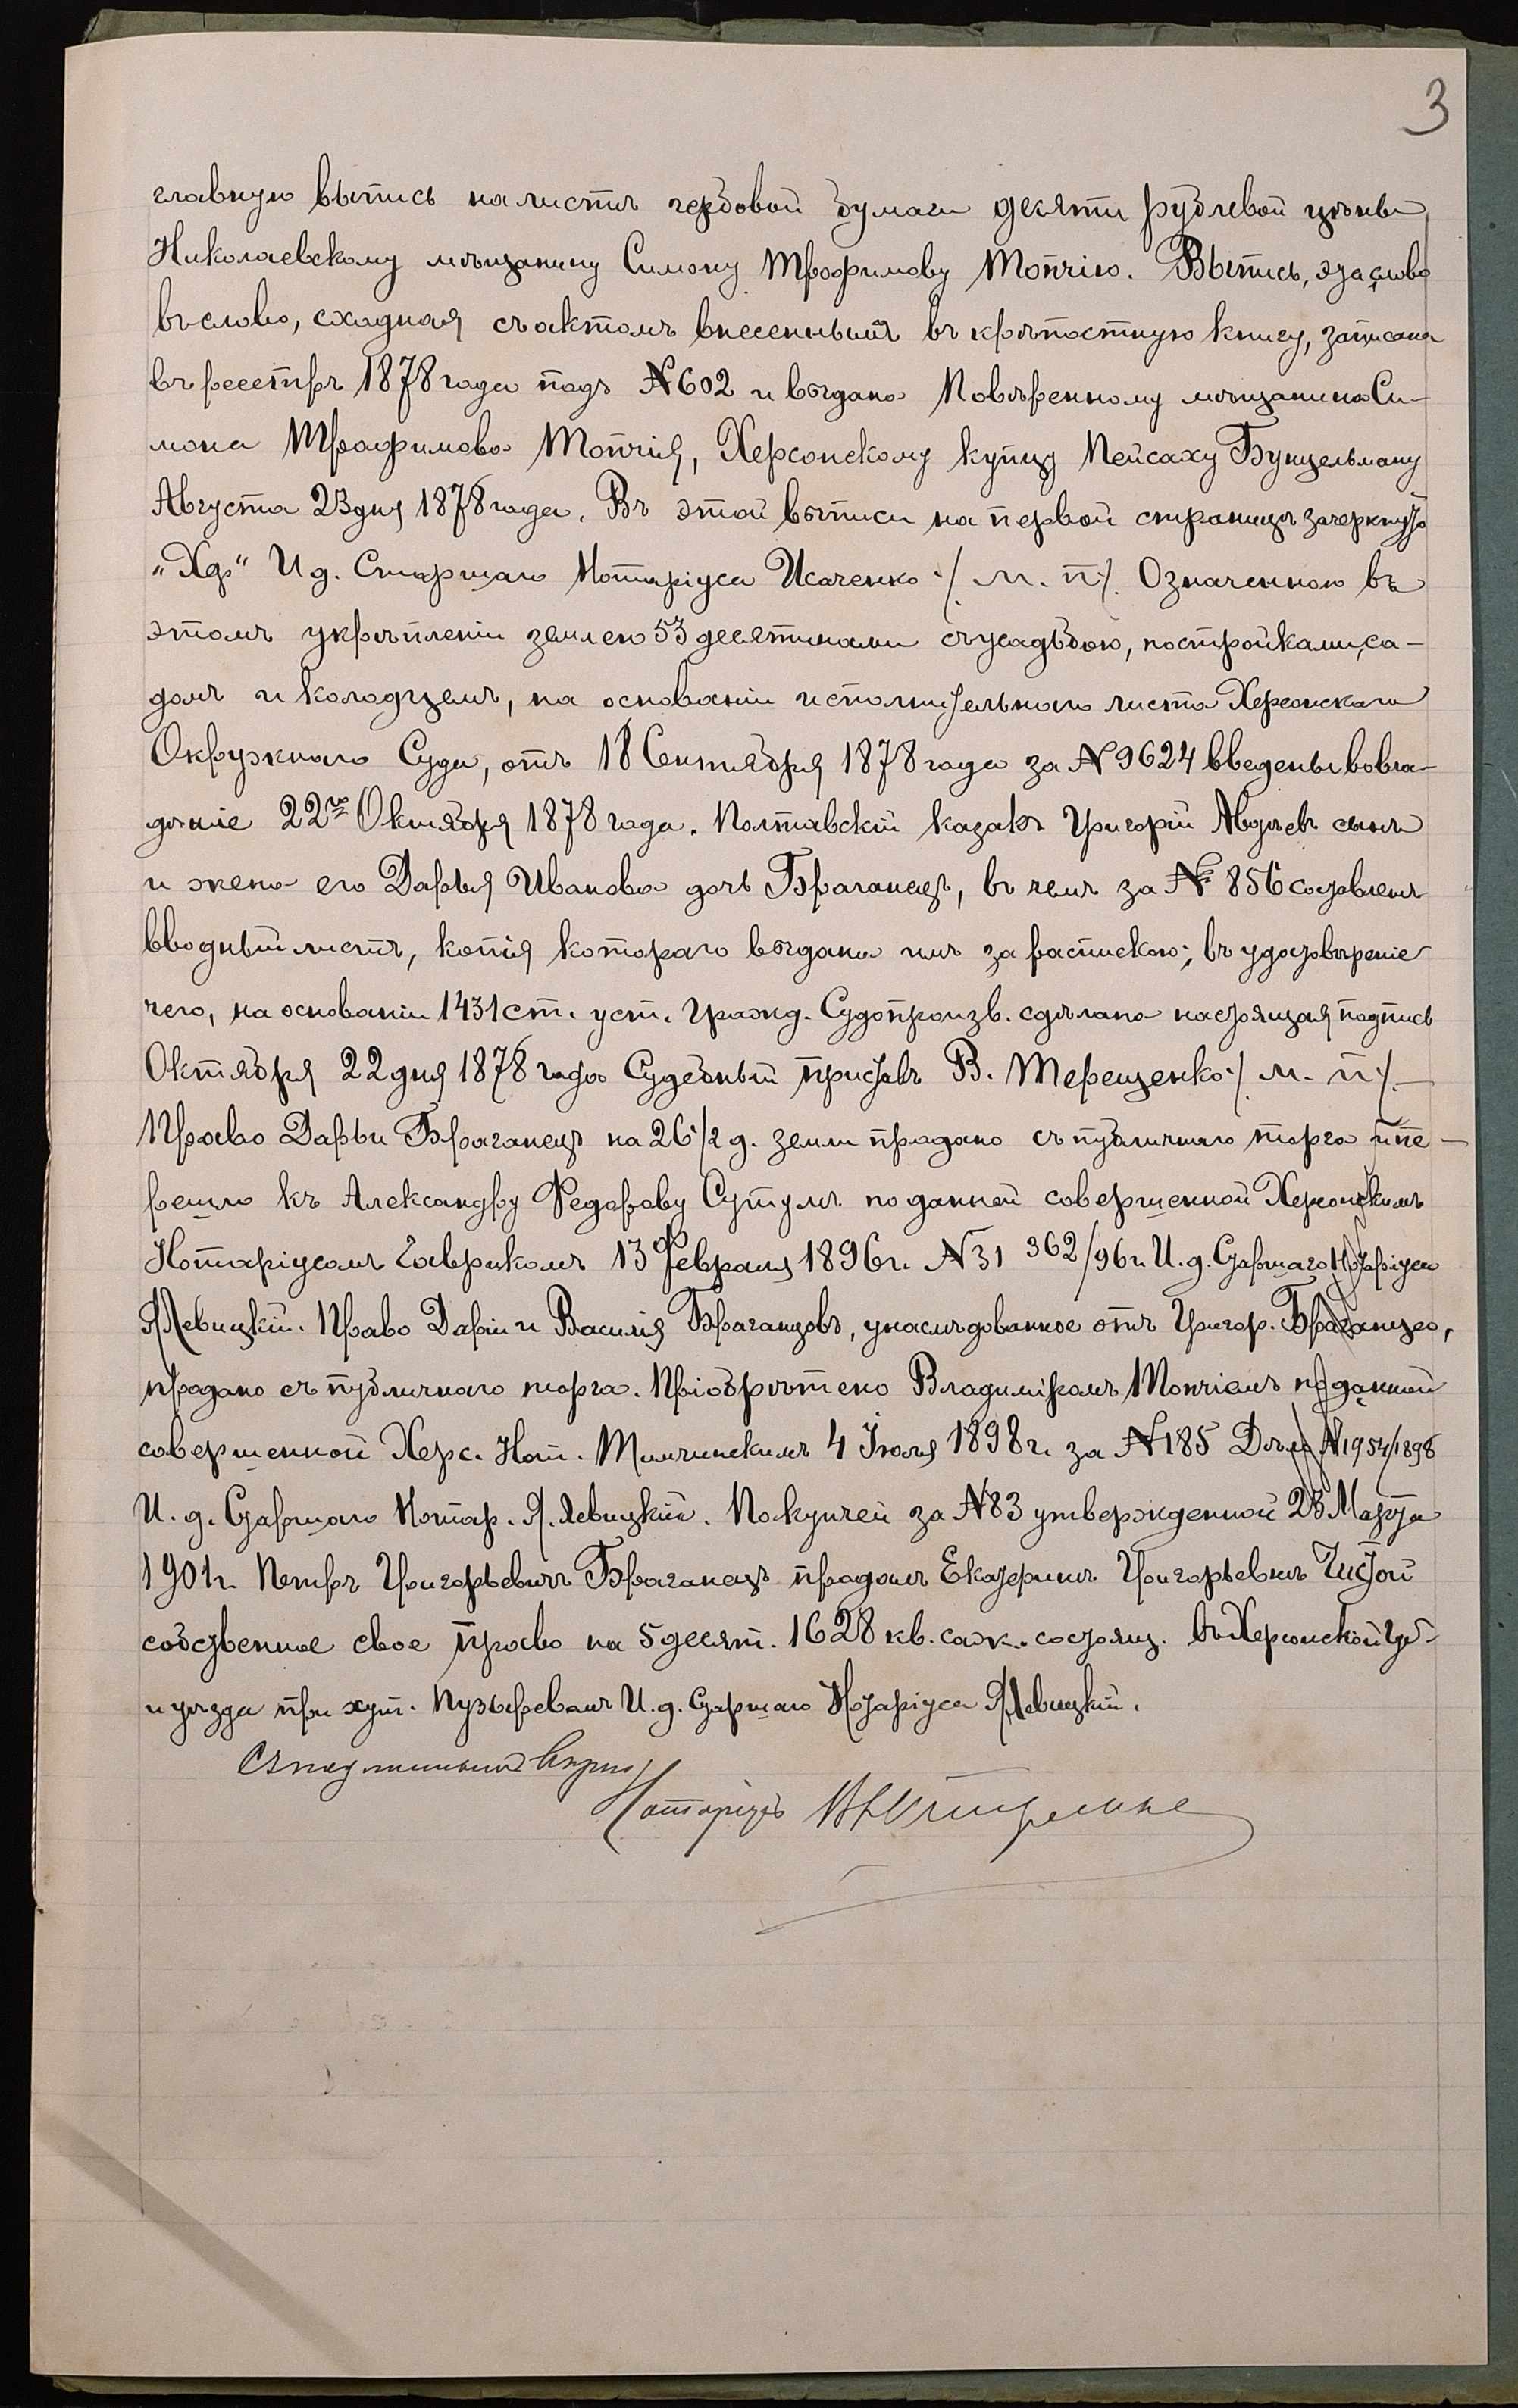 3
главную выпись на листѣ гербовой бумаги десяти рублевой цѣны
Николаевскому мѣщанину Симону Трофимову Топчію. Выпись, эта слово
въ слово, сходная съ актомъ внесеннымъ въ крѣпостную книгу, записана
въ реестрѣ 1878 года подъ №602 и выдана Повѣренному мѣщанина Си-
мона Трофимова Топчія, Херсонскому купцу Пейсаху Бунцельману
Августа 23 дня 1878 года. Въ этой выписи на первой страницѣ зачеркнуто
„Хер“ И д. Старшаго Нотаріуса Исаченко /. м. п ./. Означенною въ
этомъ укрѣпленіи землею 53 десятинами съ усадьбою, постройками, са-
домъ и колодцемъ, на основаніи исполнительнаго листа Херсонскаго
Окружнаго Суда, отъ 18 Сентября 1878 года за №9624 введены во вла-
дѣніе 22го Октября 1878 года. Полтавскій казакъ Григорій Авдѣевъ сынъ
и жена его Дарья Иванова дочь Браганецъ, въ чемъ за № 856 составленъ
вводный листъ, копія котораго выдана имъ за роспискою; въ удостовѣреніе
чего, на основаніи 1431 ст. уст. Гражд. Судопроизв. сдѣлана настоящая подпись
Октября 22 дня 1878 года Судебный приставъ В. Терещенко /. м. п ./.—
Право Дарьи Браганецъ на 26 1/2 д. земли продано съ публичнаго торга и пе-
решло къ Александру Федорову Сутулѣ по данной совершенной Херсонскимъ
Нотаріусомъ Гавриковъ 13 Февраля 1896 г. №31 362/96 г. И. д. Старшаго Нотаріуса
Я Левицкій. Право Даріи и Василія Браганцовъ, унаслѣдованное отъ Григор. Браганца,
продано съ публичнаго торга. Пріобрѣтено Владиміромъ Топчіемъ по данной
совершенной Херс. Нот. Тимчинскимъ 4 Іюля 1898 г. за №185 Дѣло №1954/1898
И. д. Старшаго Нотар. Я. Левицкій. По купчей за №83 утвержденной 23 Марта
1901 г. Петръ Григорьевичъ Браганецъ продалъ Екатеринѣ Григорьевнѣ Чистой
собственное свое право на 5 десят. 1628 кв. саж. состоящ. въ Херсонской губ.
и уѣзда при хут. Пузыревомъ И. д. Старшаго Нотаріуса Я Левицкій.
Съ подлиннымъ вѣрно
Нотаріусъ